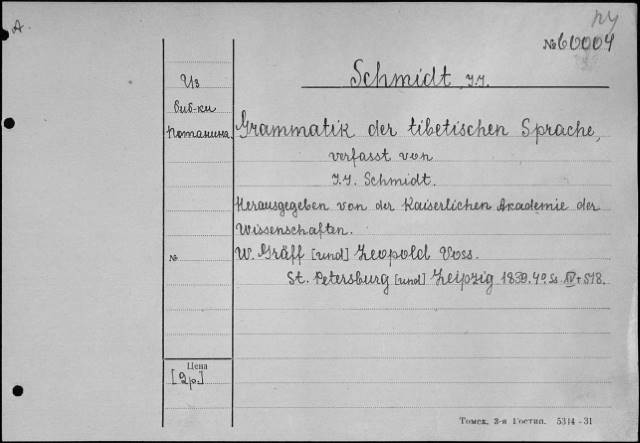 А.
пу
№ 60004
Schmidt, I.I.
Из
биб-ки
Потанина.
Grammatik der tibetischen Sprache,
verfasst von
I.I. Schmidt.
Herausgegeben von der Kaiserlichen Akademie der
Wissenschaften.
№
W. Gräff [und] Leopold Voss.
St. Petersburg [und] Leipzig 1839. 4º Ss. XV + 318.
Цена
[2р.]
Томск. 3-я Гостип. 5314 - 31